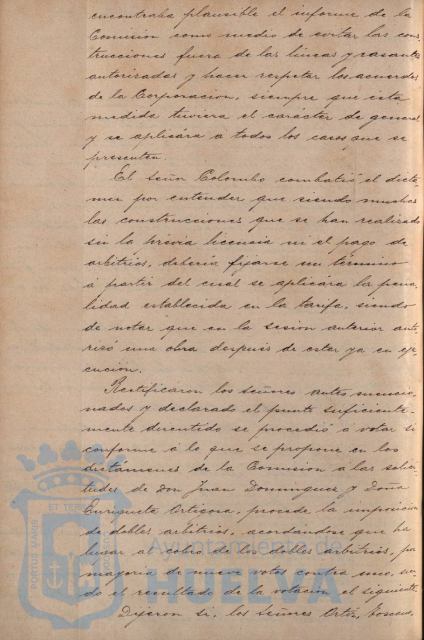 encontraba plausible el informe de la
Comisión como medio de evitar las cons-
trucciones fuera de las lineas y rasantes
autorizadas y hacer respetar los acuerdos
de la Corporacion, siempre que esta
medida tuviera el carácter de general
y se aplicára a todos los casos que se
presenten.
El señor Colombo combatió el dictá-
men por entender que siendo muchas
las construcciones que se han realizado
sin la prévia licencia ni el pago de
arbitrios, debería fijarse un término
á partir del cual se aplicára la pena-
lidad establecida en la tarifa, siendo
de notar que en la sesion anterior auto-
rizó una obra después de estar ya en eje-
cucion.
Rectificaron los señores antes mencio-
nados y declarado el punto suficiente-
mente discutido se procedió á votar si
conforme á lo que se propone en los
dictámenes de la Comision a las solici-
tudes de Don Juan Dominguez y Doña
Ortigosa, procede la imposicion
de dobles arbitrios, acordándose que ha
lugar al cobro de los dobles arbitrios, por
mayoria de nueve votos contra uno, sien-
do el resultado de la votacion el siguiente.
Dijeron si, los señores Ortiz,
PORTUS MARIS ET TERRE
Ayuntamiento de
HUELVA